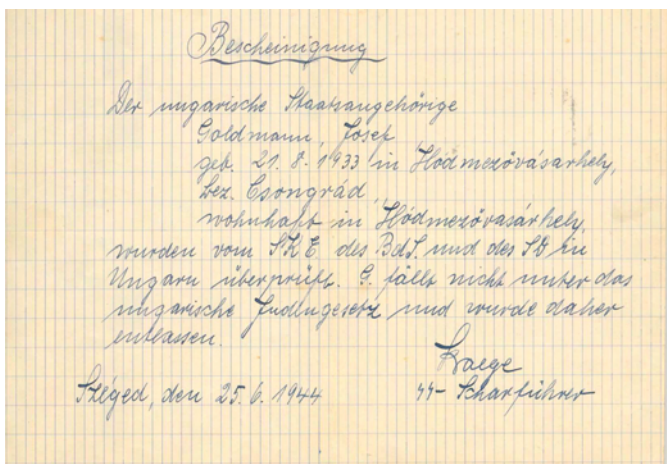 Bescheinigung
Der ungarische Staatsangehörige
Goldmann, Josef
geb. 21. 8. 1933 in Hódmezövásárhely,
bez. Csongrád,
wohnhaft in Hódmezövasárhely,
wurden vom SKE. des BdS. und des SD in
Ungarn überprüft. G. fällt nicht unter das
ungarische Judengesetz und wurde daher
entlassen.
Szeged, den 25. 6. 1944
SS-Scharführer